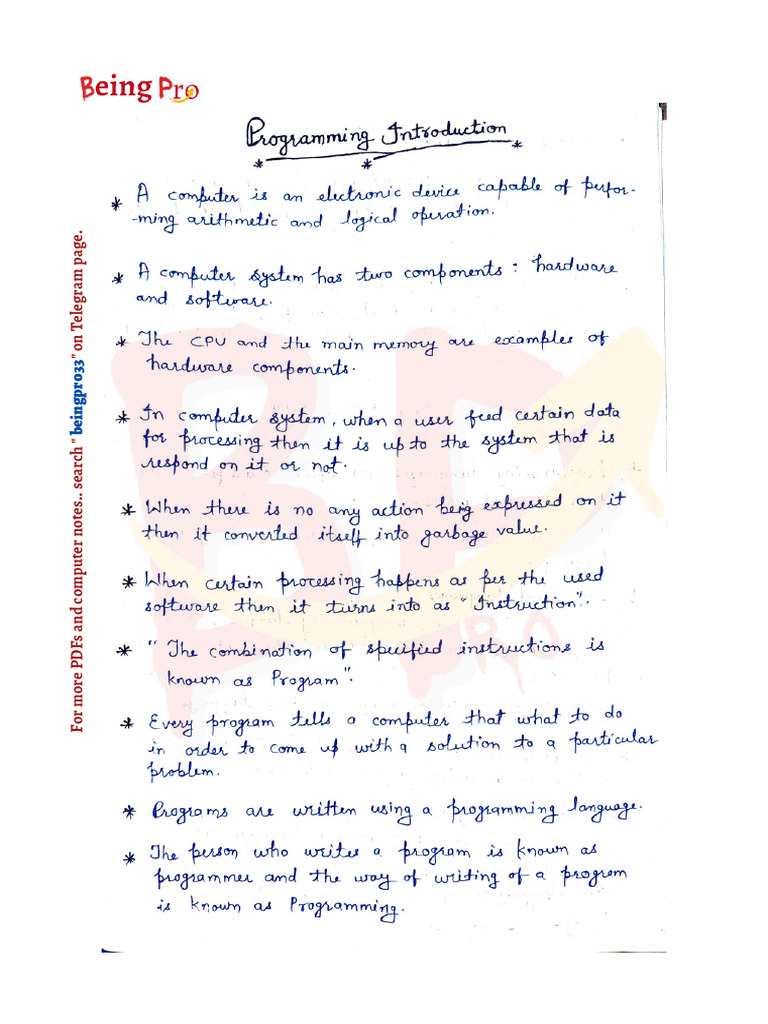 Being Pro
Programming Introduction
* A computer is an electronic device capable of perfor-
-ming arithmetic and logical operation.
* A computer system has two components : hardware
and software.
* The CPU and the main memory are examples of
hardware components.
* In computer system, when a user feed certain data
for processing then it is up to the system that is
respond on it or not.
* When there is no any action being expressed on it
then it converted itself into garbage value.
* When certain processing happens as per the used
software then it turns into as "Instruction".
* "The combination of specified instructions is
known as Program".
* Every program tells a computer that what to do
in order to come up with a solution to a particular
problem.
* Programs are written using a programming language.
* The person who writes a program is known as
programmer and the way of writing of a program
is known as Programming.
For more PDFs and computer notes.. search " beingpro33" on Telegram page.
BP
PRO